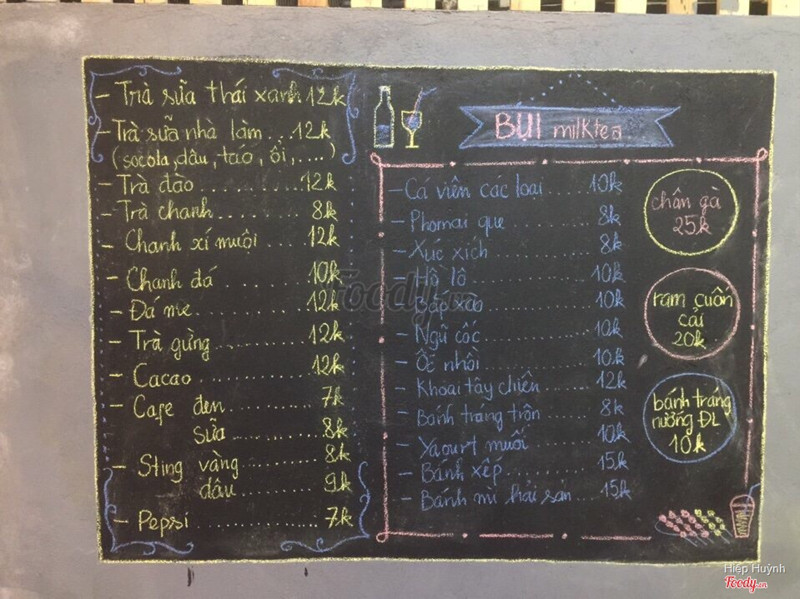 - Trà sữa thái xanh 12k
- Trà sữa nhà làm ... 12k
(socola, dâu, táo, ổi, ....)
- Trà đào ............ 12k
- Trà chanh .......... 8k
- Chanh xí muội ..... 12k
- Chanh đá 10k
- Đá me .............. 12k
- Trà gừng ........... 12k
- Cacao .............. 12k
- Cafe đen ........... 7k
Sữa ............ 8k
- Sting vàng ......... 8k
dâu ............ 9k
- Pepsi .............. 7k
BỤI milktea
- Cá viên các loại .... 10k
- Phomai que ........ 8k
- Xúc xích .......... 8k
- Hồ lô ............. 10k
- Bắp xào ........... 10k
- Ngũ cốc ........... 10k
- Ốc nhồi ........... 10k
- Khoai tây chiên .... 12k
- Bánh tráng trộn .... 8k
- Yaourt muối ....... 10k
- Bánh xếp .......... 15k
- Bánh mì hải sản ... 15k
chân gà
25k
ram cuốn
cải
20k
bánh tráng
nướng ĐL
10k
Foody.vn
Hiệp Huỳnh
Foody.vn